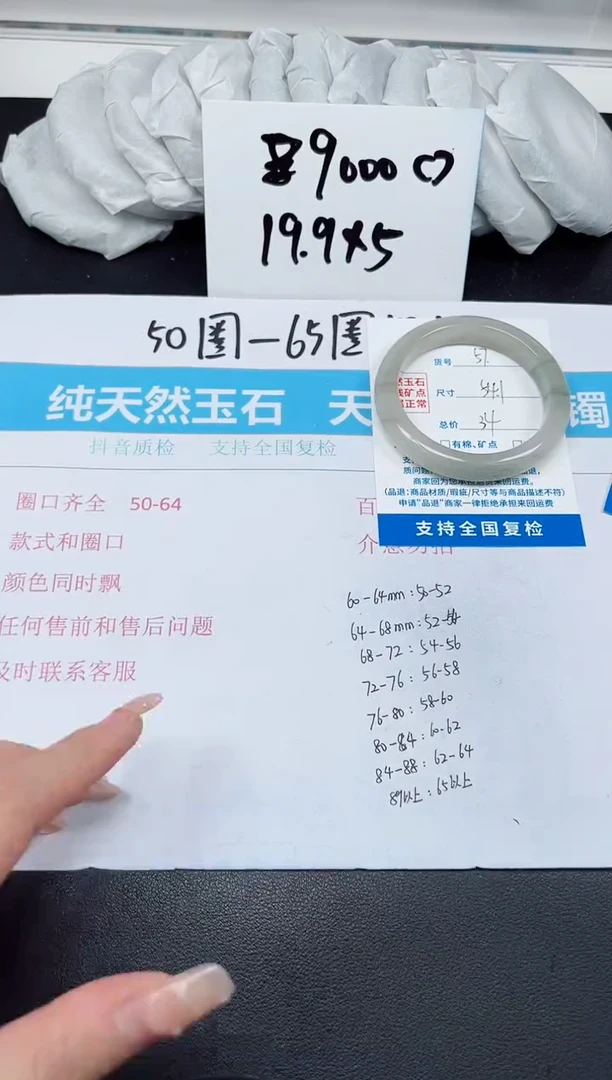 9000
19.9×5
50圈—65圈
纯天然玉石 天
镯
抖音质检 支持全国复检
圈口齐全 50-64
款式和圈口
颜色同时飘
任何售前和售后问题
及时联系客服
百
介意勿拍
货号 51
然玉石
线矿点
正常
尺寸
总价 34
有棉、矿点
商家回为您承担退货回运费。
(品退:商品材质/瑕疵/尺寸等与商品描述不符)
申请"品退"商家一律拒绝承担来回运费
支持全国复检
60-64mm:50-52
64-68mm:52-54
68-72:54-56
72-76:56-58
76-80:58-60
80-84:60-62
84-88:62-64
89以上:65以上